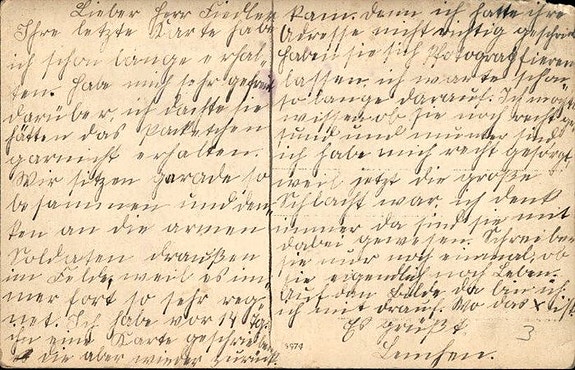 Lieber Herr Fiedler
Ihre letzte Karte habe
ich schon lange erhal-
ten. Habe mich sehr gefreut
darüber, ich dachte sie
hätten das Packetchen
garnicht erhalten.
Wir sitzen gerade so
beisammen und den-
ken an die armen
Soldaten draußen
im Felde, weil es im-
mer fort so sehr reg-
net. Ich habe vor 14 Tg.
ihn eine Karte geschrieben
die aber wieder zurück
kam. denn ich hatte ihre
Adresse nicht richtig geschrieben
haben sie sich Photografieren
lassen, ich warte schon
so lange darauf. Ich möchte
wissen ob Sie noch recht ge-
sund und munter sind
ich habe mich recht gesorgt
weil jetzt die große
Schlacht war, ich denk
immer da sind sie mit
dabei gewesen. Schreiben
sie mir noch einmal, ob
sie eigendlich noch Leben.
Auf dem Bilde da bin ich
ich mit drauf. Wo das x ist.
Es grüßt
Lenchen.
3
4974